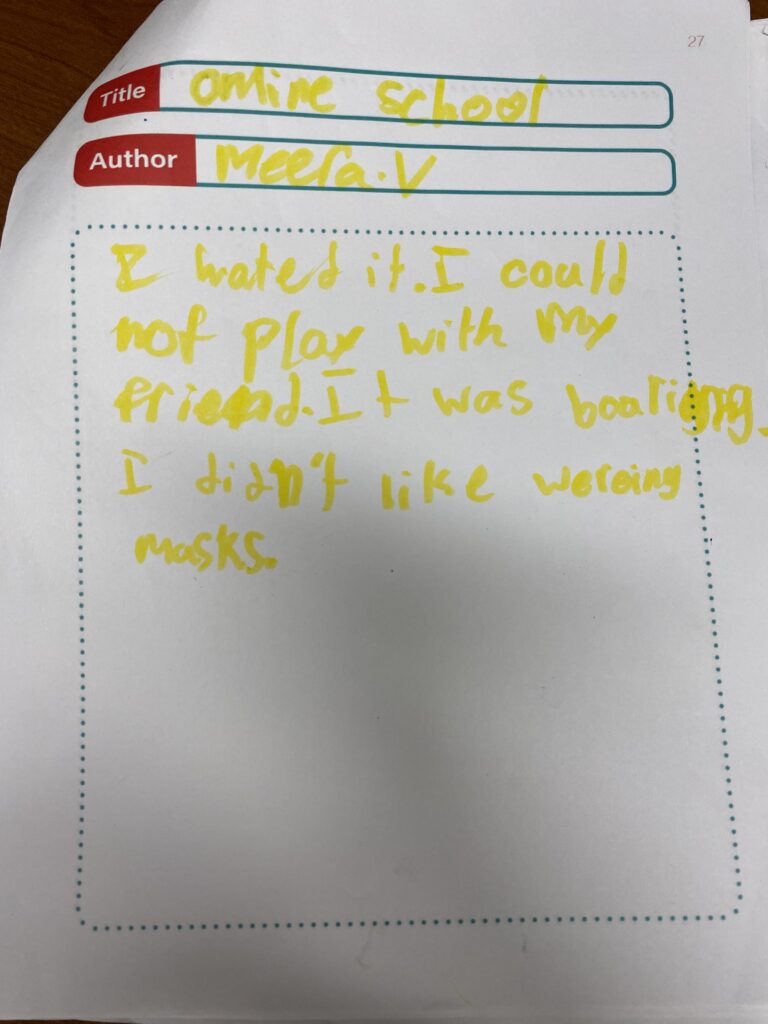 27
Title omline school
Author Meera.V
I hated it. I could
not play with my
friend. It was boarigng.
I didn't like wereing
masks.